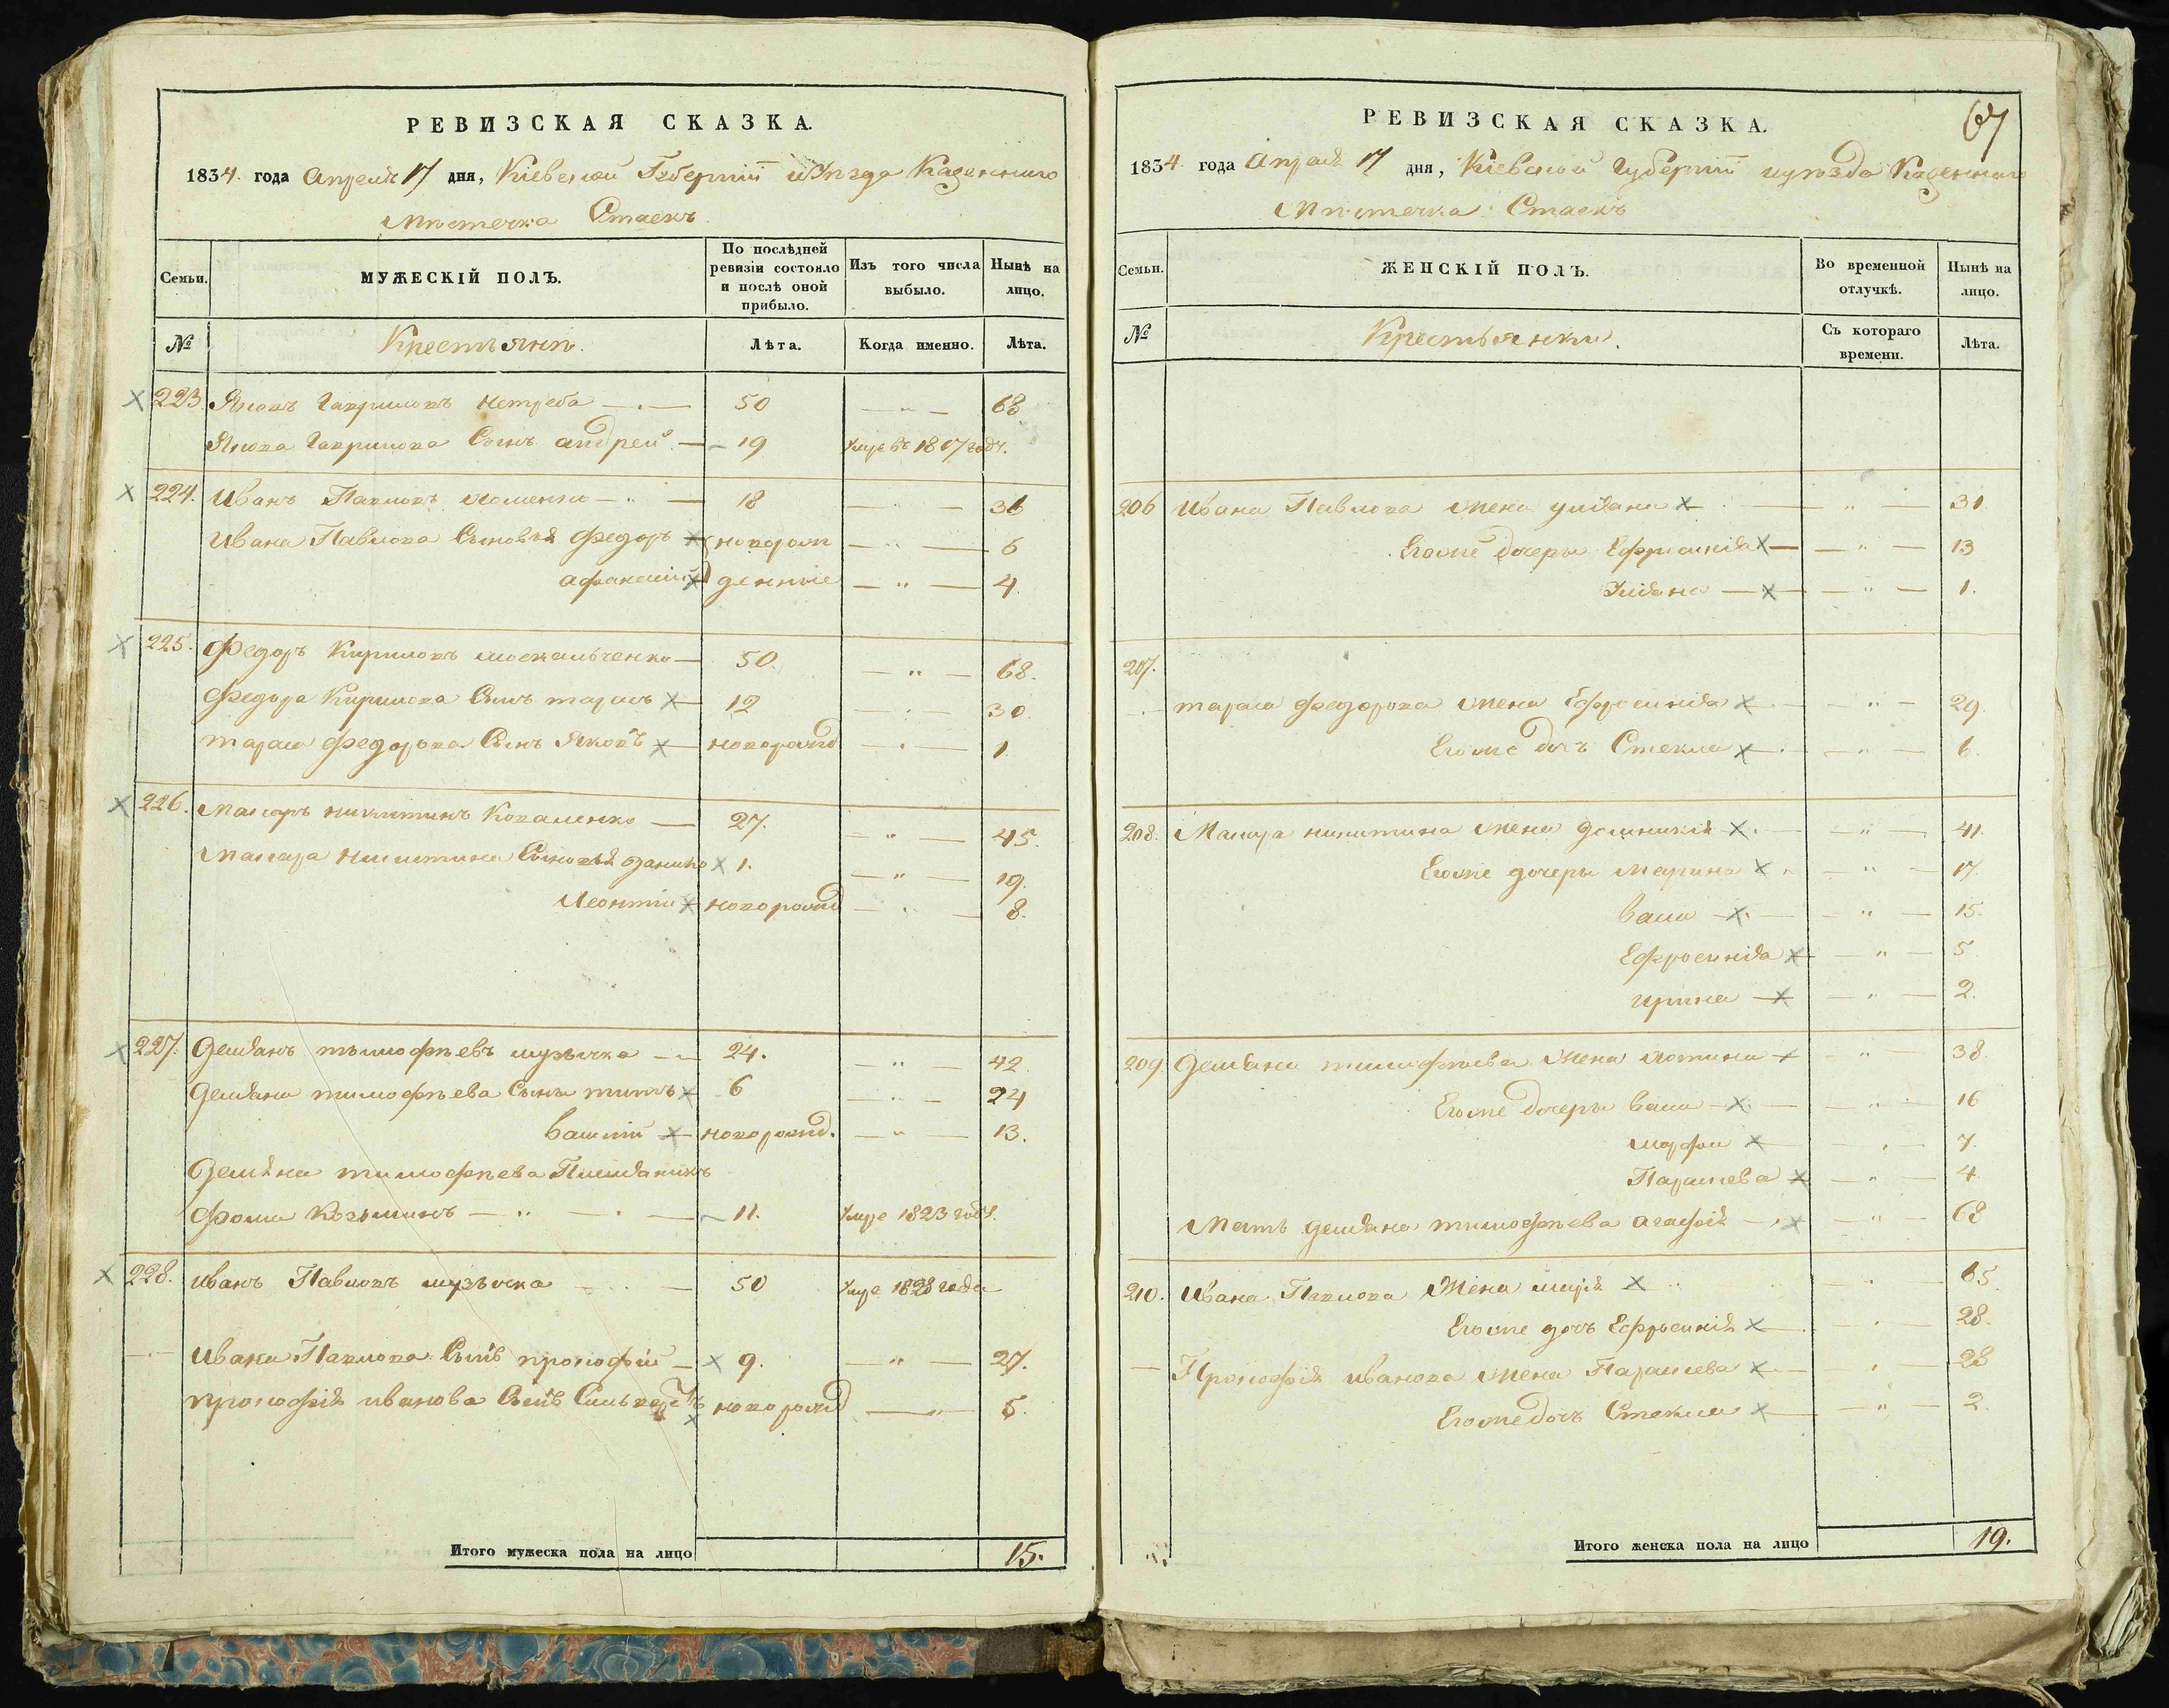 РЕВИЗСКАЯ СКАЗКА.
1834. года Апреля 17 дня, Кіевской Губерніи и Уѣзда Казеннаго
Мѣстечка Стаекъ
Семьи.
МУЖЕСКІЙ ПОЛЪ.
По послѣдней ревизіи состояло и послѣ оной прибыло.
Изъ того числа выбыло.
Нынѣ на лицо.
№
Крестьяне.
Лѣта.
Когда именно.
Лѣта.
223 Яковъ Гавриловъ Нетреба 50 68
Якова Гаврилова Сынъ андрей 19 Умре въ 1817 годѣ.
224. Иванъ Павловъ 18 36
Ивана Павлова Сыновья Федоръ новорож 6
афанасий денные 4
225. Федоръ Кириловъ москальченко 50. 68.
Федора Кирилова Сынъ тарасъ 12 30
тараса федорова Сынъ Яковъ новорожд 1.
226. Макаръ никитинъ Коваленко 27. 45.
Макара никитина Сыновья данило 1. 19.
Леонтий новорожд 8.
227. Демьянъ тимофѣевъ музычка 24. 42.
Демьяна тимофѣева Сыны титъ 6 24
василий новорожд. 13.
Демьяна тимофѣева Племянникъ
Фома Козьминъ 11. Умре 1823 годѣ.
228. Иванъ Павловъ музычка 50 Умре 1828 года
Ивана Павлова Сынъ прокофий 9. 27.
прокофія иванова Сынъ новорожд 5.
Итого мужеска пола на лицо 15.
67
РЕВИЗСКАЯ СКАЗКА.
1834. года Апреля 17 дня, Кіевской Губерніи и уѣзда Казеннаго
Мѣстечка Стаекъ
Семьи.
ЖЕНСКІЙ ПОЛЪ.
Во временной отлучкѣ.
Нынѣ на лицо.
№
Крестьянки.
Съ котораго времени.
Лѣта.
206 Ивана Павлова жена улияна 31.
Егоже дочеры Ефросинія 13
Улияна 1.
207.
тараса федорова жена Ефросинія 29.
Егоже дочъ Стекла 6.
208. Макара никитина жена домникія 41.
Егоже дочеры Марина 17.
васса 15.
Ефросинія 5
ирина 2.
209 Демьяна тимофѣева жена 38
Егоже дочеры васса 16
марфа 7.
Параскева 4
Мать демьяна тимофѣева агафія 68
210. Ивана Павлова Жена марія 65
Егоже дочъ Ефросинія 28.
Прокофія иванова жена Параскева 28
Егоже дочъ Стекла 2.
Итого женска пола на лицо 19.